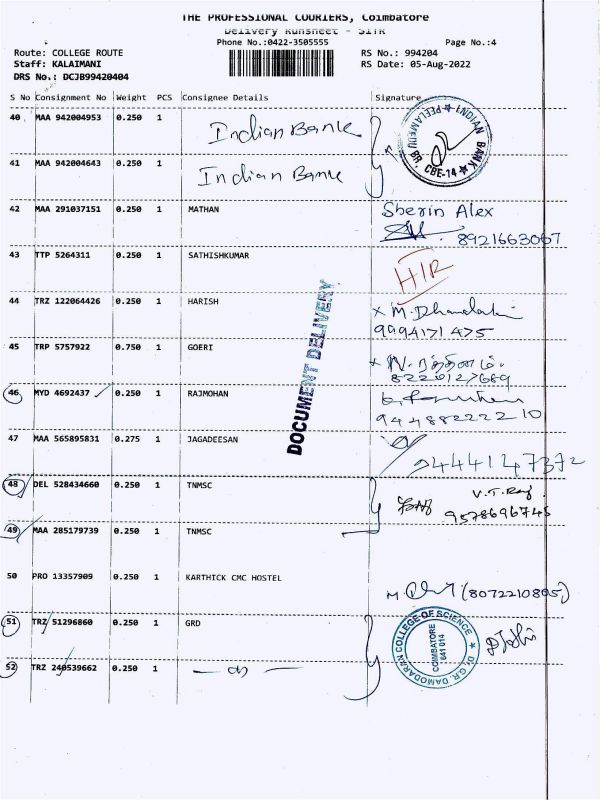 THE PROFESSIONAL COURIERS, Coimbatore
Delivery Runsheet - SITR
Phone No.:0422-3505555 Page No.:4
Route: COLLEGE ROUTE RS No.: 994204
Staff: KALAIMANI RS Date: 05-Aug-2022
DRS No.: DCJB99420404
S No Consignment No Weight PCS Consignee Details Signature
40 MAA 942004953 0.250 1 Indian Bank
INDIAN BANK PEELAMEDU BR, CBE-14
41 MAA 942004643 0.250 1 Indian Bank
42 MAA 291037151 0.250 1 MATHAN Sherin Alex
8921663067
43 TTP 5264311 0.250 1 SATHISHKUMAR HIR
44 TRZ 122064426 0.250 1 HARISH
9994171475
45 TRP 5757922 0.750 1 GOERI
DOCUMENT DELIVERY
46 MYD 4692437 0.250 1 RAJMOHAN
47 MAA 565895831 0.275 1 JAGADEESAN
9444147372
48 DEL 528434660 0.250 1 TNMSC V.T.Raj
9578696745
49 MAA 285179739 0.250 1 TNMSC
50 PRO 13357909 0.250 1 KARTHICK CMC HOSTEL (8072210805)
51 TRZ 51296860 0.250 1 GRD
Dr. G.R. DAMODARAN COLLEGE OF SCIENCE
COIMBATORE
641 014
52 TRZ 240539662 0.250 1